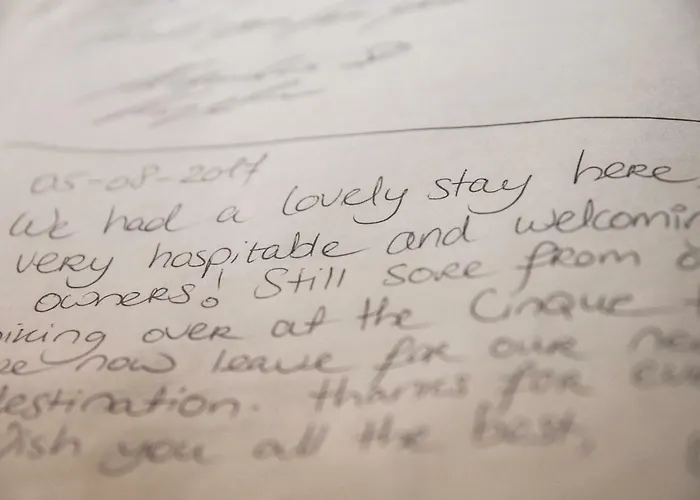 05-08-2017
We had a lovely stay here
very hospitable and welcomin
owners! Still sore from
iking over at the Cinque
we now leave for our
destination. thanks for
ish you all the best,